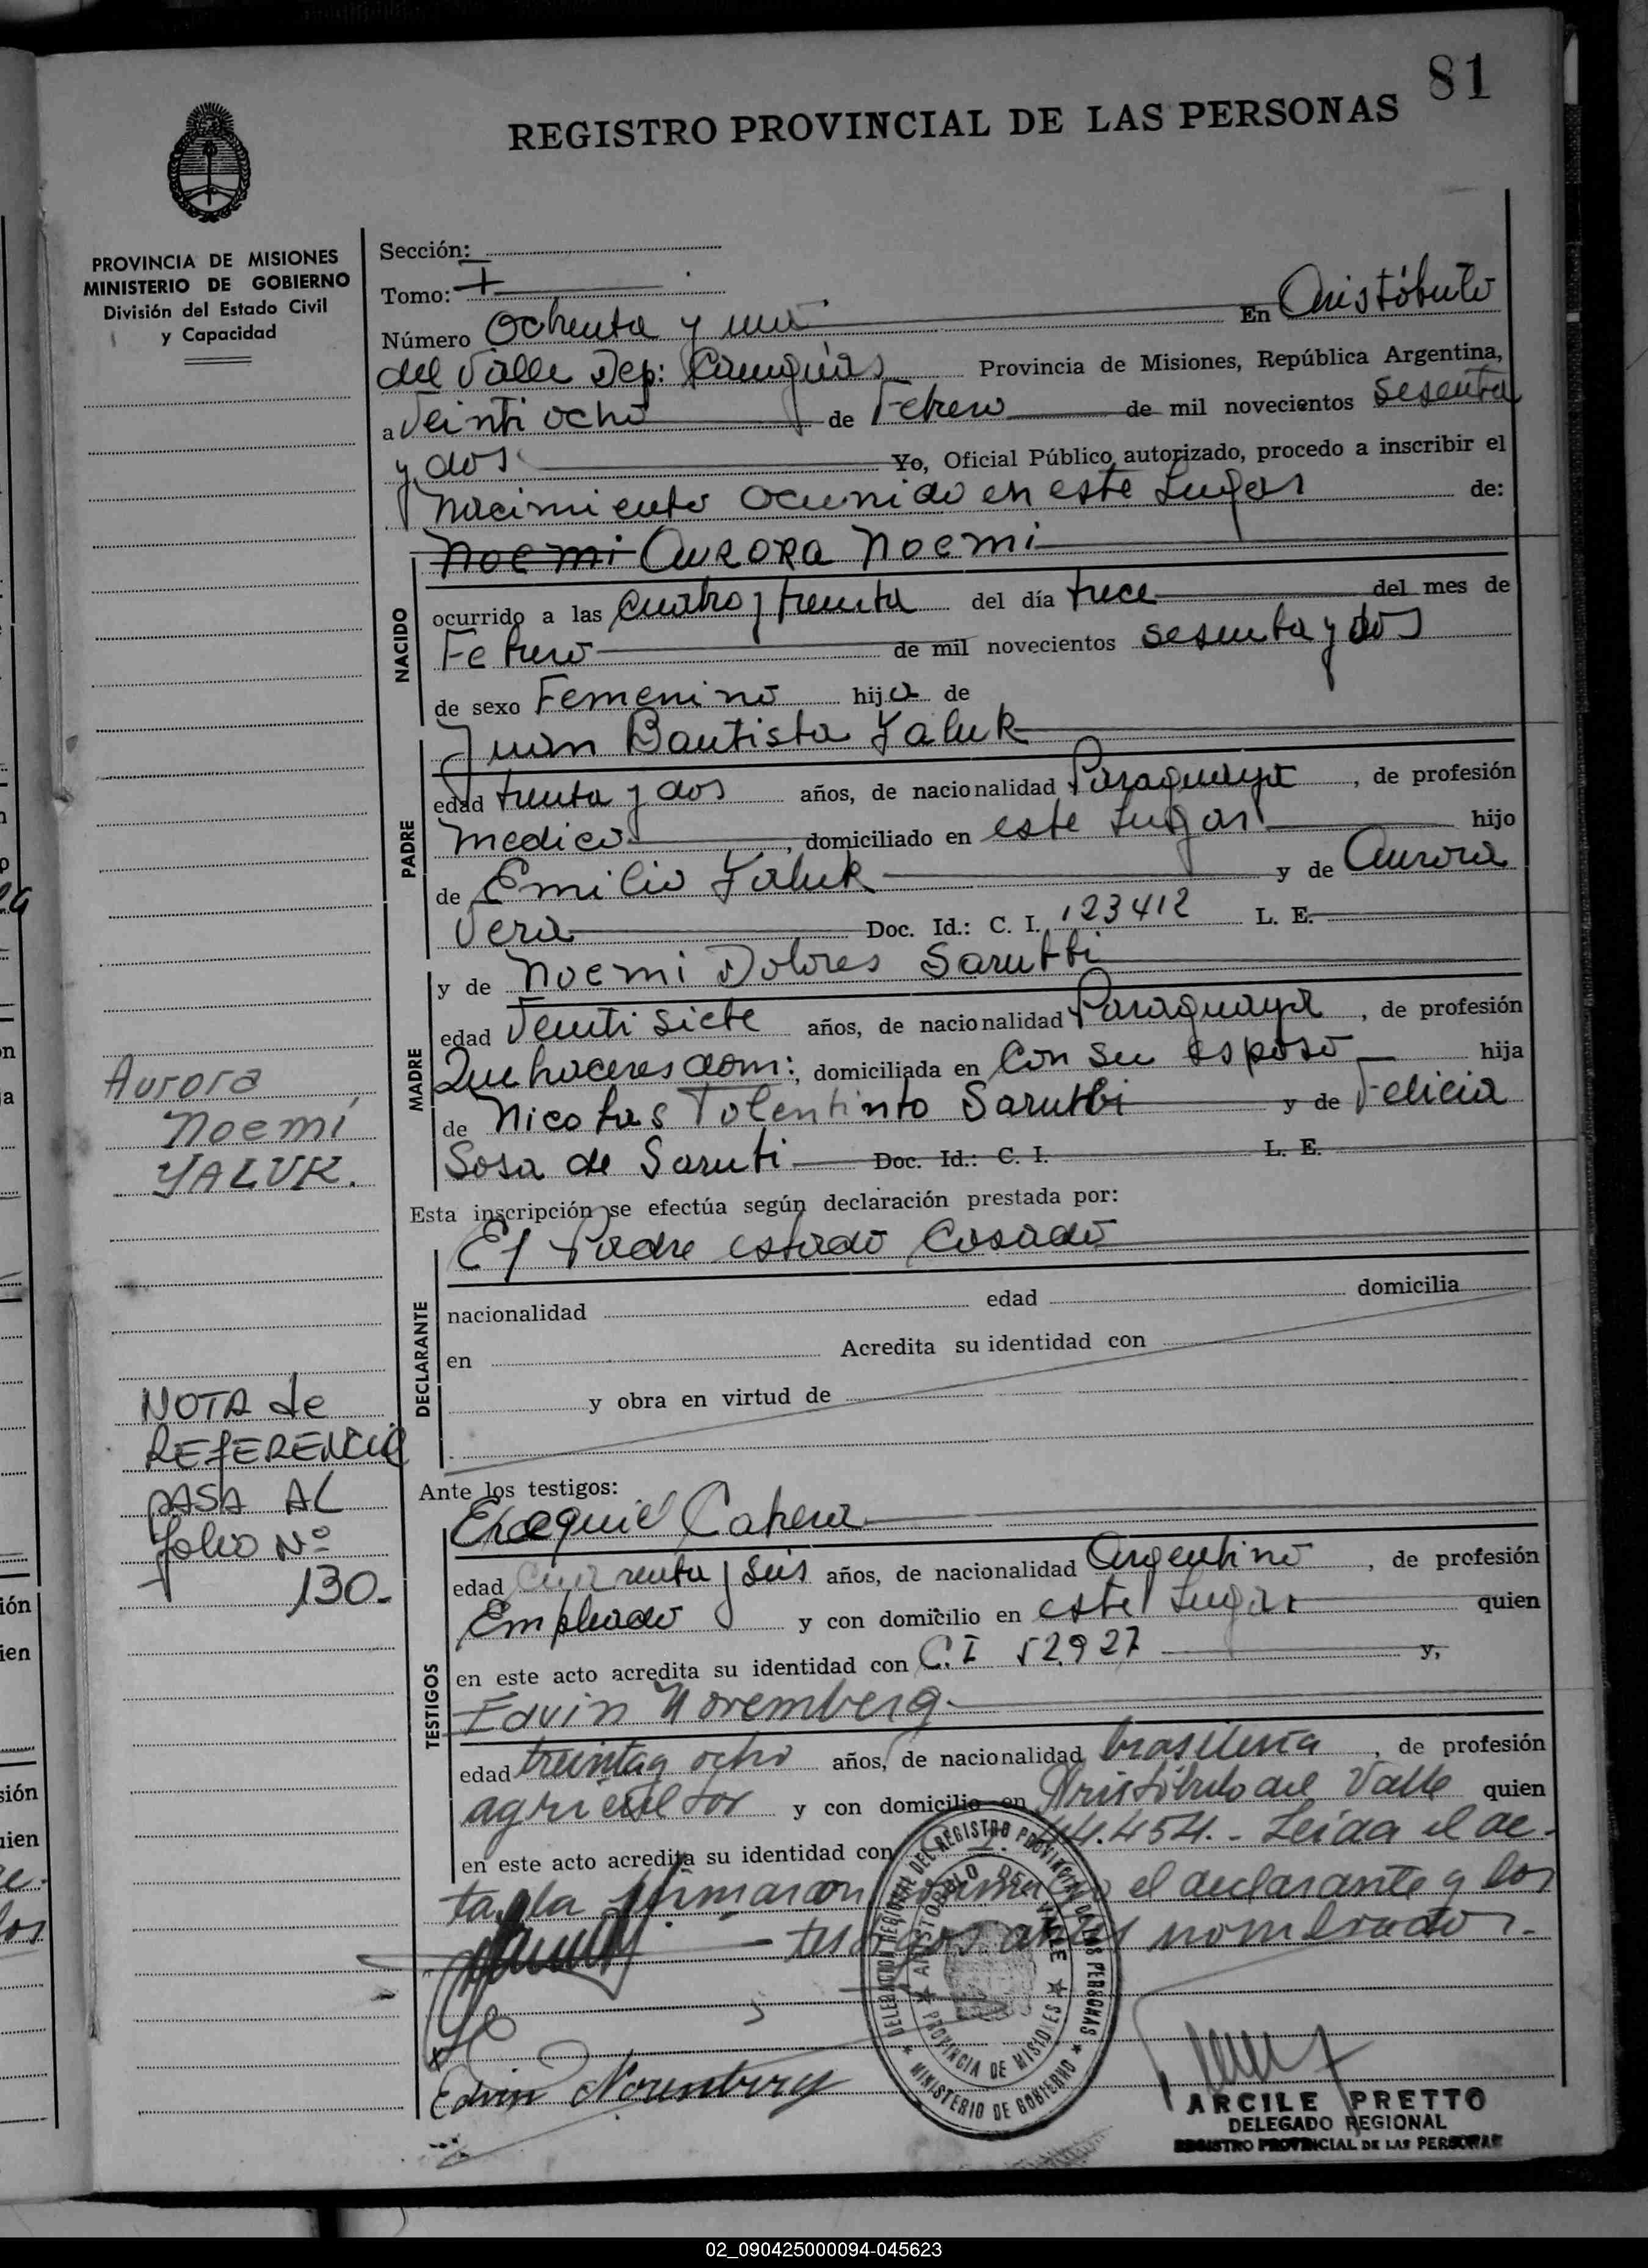 81
REGISTRO PROVINCIAL DE LAS PERSONAS
PROVINCIA DE MISIONES
MINISTERIO DE GOBIERNO
División del Estado Civil
y Capacidad
Sección:
Tomo:
Número Ochenta y uno En Aristóbulo
del Valle Dep: Cainguás Provincia de Misiones, República Argentina,
a Veinti ocho de Febrero de mil novecientos sesenta
y dos Yo, Oficial Público autorizado, procedo a inscribir el
Nacimiento ocurrido en este Lugar de:
NACIDO
Noemi Aurora Noemi
ocurrido a las cuatro y treinta del día trece del mes de
Febrero de mil novecientos sesenta y dos
de sexo Femenino hija de
PADRE
Juan Bautista Yaluk
edad treinta y dos años, de nacionalidad Paraguaya, de profesión
medico, domiciliado en este Lugar hijo
de Emilio Yaluk y de Aurora
Vera Doc. Id.: C. I. 123412 L. E.
MADRE
y de Noemi Dolores Sarubbi
edad Veinti siete años, de nacionalidad Paraguaya, de profesión
Quehaceres dom:, domiciliada en Con su esposo hija
de Nicolas Tolentinto Sarubbi y de Felicia
Sosa de Saruti Doc. Id.: C. I. L. E.
Esta inscripción se efectúa según declaración prestada por:
DECLARANTE
El Padre estado Casado
nacionalidad edad domicilia
en Acredita su identidad con
y obra en virtud de
Aurora
Noemí
YALUK.
NOTA de
REFERENCIA
PASA AL
folio Nº
130.-
Ante los testigos:
TESTIGOS
Exequiel Cabrera
edad Cuarenta y seis años, de nacionalidad Argentino, de profesión
Empleado y con domicilio en este Lugar quien
en este acto acredita su identidad con C.I 52927 y,
Edvin Noremberg
edad treinta y ocho años, de nacionalidad brasileña, de profesión
agricultor y con domicilio en Aristóbulo del Valle quien
en este acto acredita su identidad con 14.454.- Leida el ac-
ta, la firmaron conmigo el declarante y los
testigos antes nombrados.-
Edvin Noremberg
DELEGACION REGIONAL DEL REGISTRO PROVINCIAL DE LAS PERSONAS
MINISTERIO DE GOBIERNO
ARISTOBULO DEL VALLE
PROVINCIA DE MISIONES
ARCILE PRETTO
DELEGADO REGIONAL
REGISTRO PROVINCIAL DE LAS PERSONAS
02_090425000094-045623